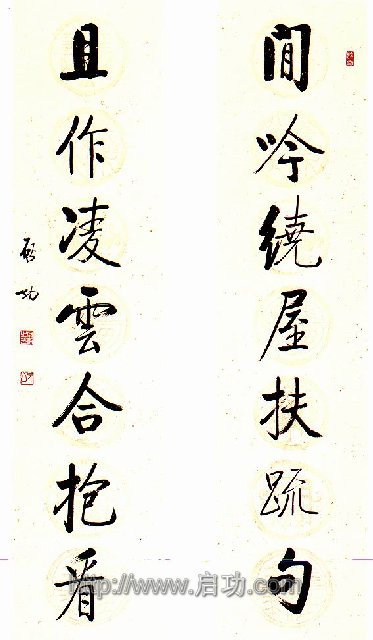 閒吟繞屋扶疏句
且作凌雲合抱看
啟功
http://www.启功.com